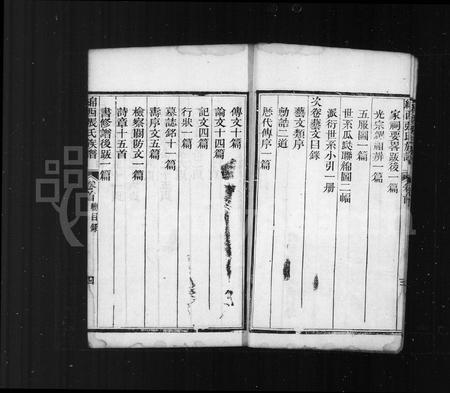 家祠要畧跋一篇
光宗耀祖辨一篇
五服圖一篇
世系瓜瓞聯綿圖二幅
派衍世系小引一冊
次卷藝文目錄
藝文類序
勅誥二道
歷代傳序一篇
傳文十篇
論文十四篇
記文四篇
行狀一篇
墓誌銘十一篇
壽序文五篇
檢察關防文一篇
詩章十五首
書修譜後跋一篇
張氏族譜
卷之首
總目錄
四